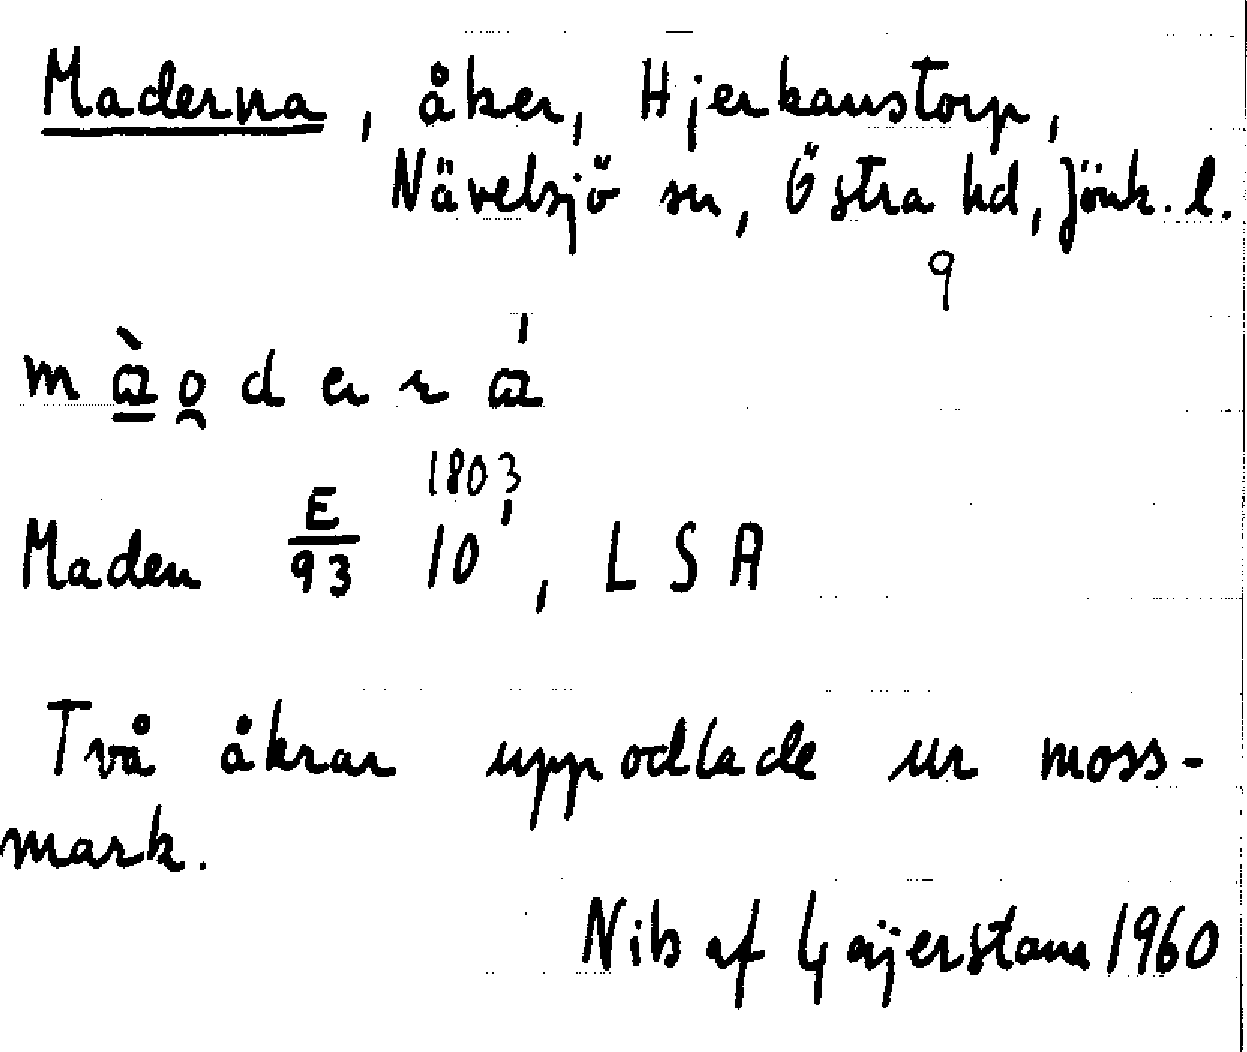 Maderna, åker, Hjerkanstorp,
Nävelsjö sn, Östra hd, Jönk. l.
9
Maden E/93 10, LSA
1803
Två åkrar uppodlade ur moss-
mark.
Nils af Geijerstam 1960